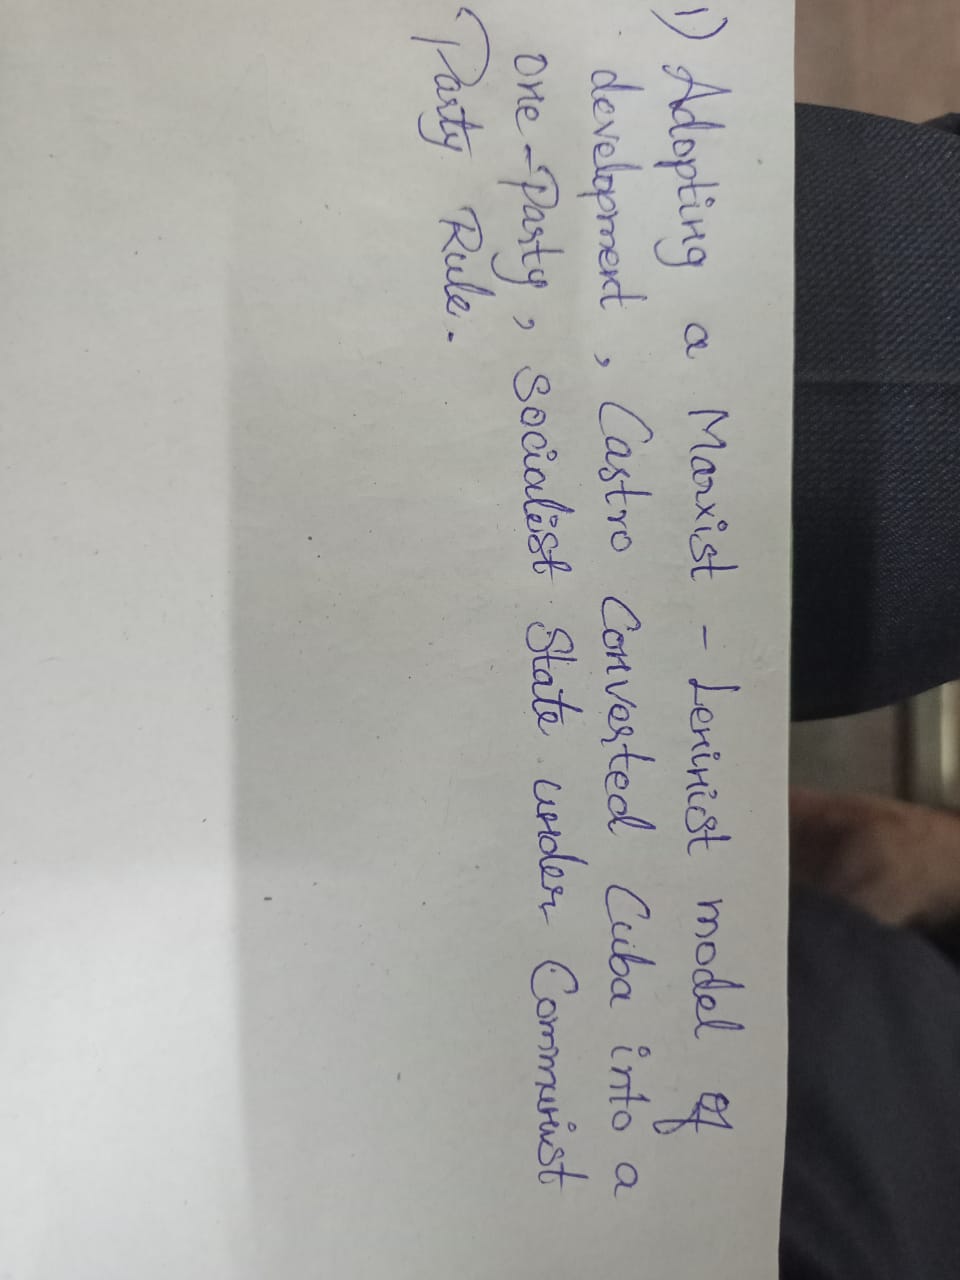 1) Adopting a Marxist - Leninist model of
development, Castro Converted Cuba into a
one-Party, Socialist State under Communist
Party Rule.